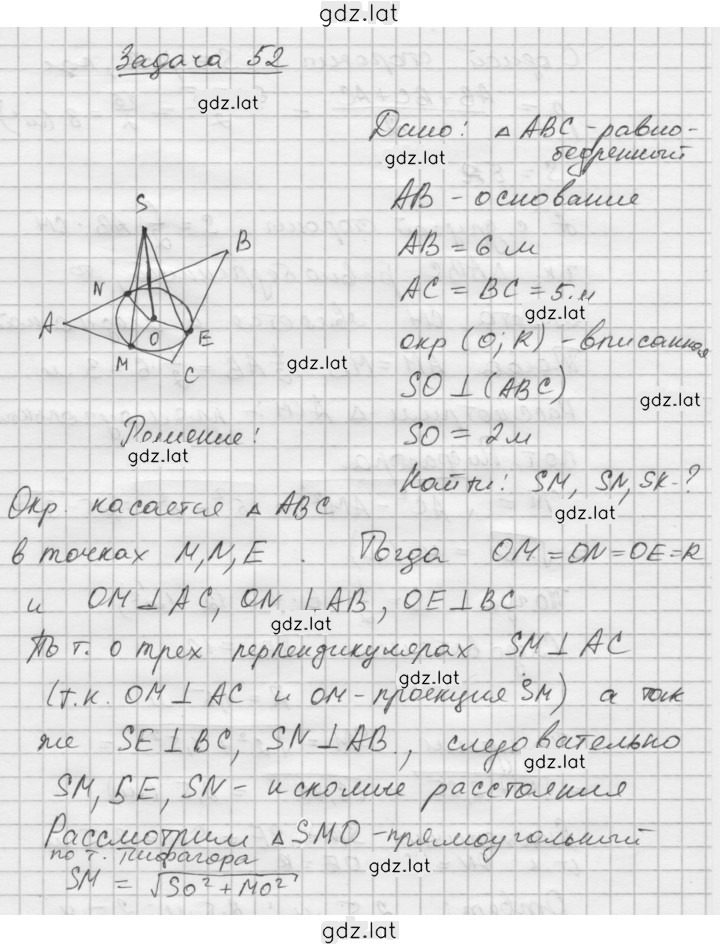 gdz.lat
Задача 52
gdz.lat
Дано: △ ABC - равно-
бедренный
gdz.lat
AB - основание
AB = 6 м
AC = BC = 5 м
gdz.lat
окр (O; R) - вписанная
SO ⊥ (ABC)
gdz.lat
SO = 2 м
Найти: SM, SN, SK-?
gdz.lat
S
B
N
A
O
E
M
C
gdz.lat
Решение!
gdz.lat
Окр. касается △ ABC
в точках M, N, E . Тогда OM = ON = OE = R
и OM ⊥ AC, ON ⊥ AB, OE ⊥ BC
gdz.lat
По т. о трех перпендикулярах SM ⊥ AC
gdz.lat
(т.к. OM ⊥ AC и OM - проекция SM) а так
же SE ⊥ BC, SN ⊥ AB, следовательно
SM, SE, SN - искомые расстояния
Рассмотрим △ SMO - прямоугольный
по т. Пифагора
gdz.lat
SM = √SO² + MO²
gdz.lat